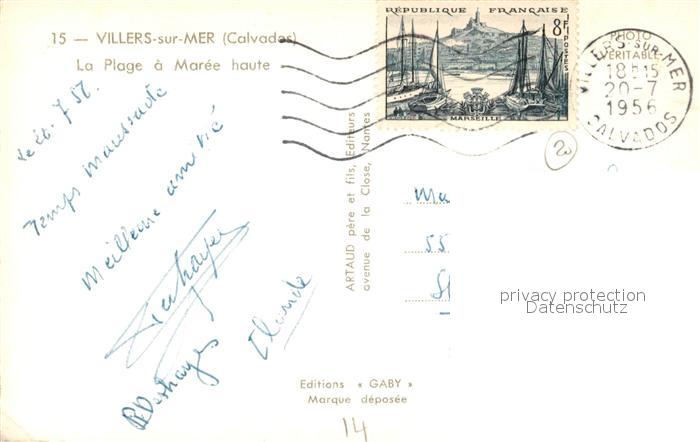 15 — VILLERS-sur-MER (Calvados)
La Plage à Marée haute
RÉPUBLIQUE FRANÇAISE
8F
POSTES
MARSEILLE
PHOTO
VÉRITABLE
VILLERS-SUR-MER
18H15
20-7
1956
CALVADOS
20
le 20.7.56.
Temps maussade
Meilleure amitié
Deshayes
R Deshayes
Claude
ARTAUD père et fils, Editeurs
avenue de la Close, Nantes
Ma
55
privacy protection
Datenschutz
Editions « GABY »
Marque déposée
14